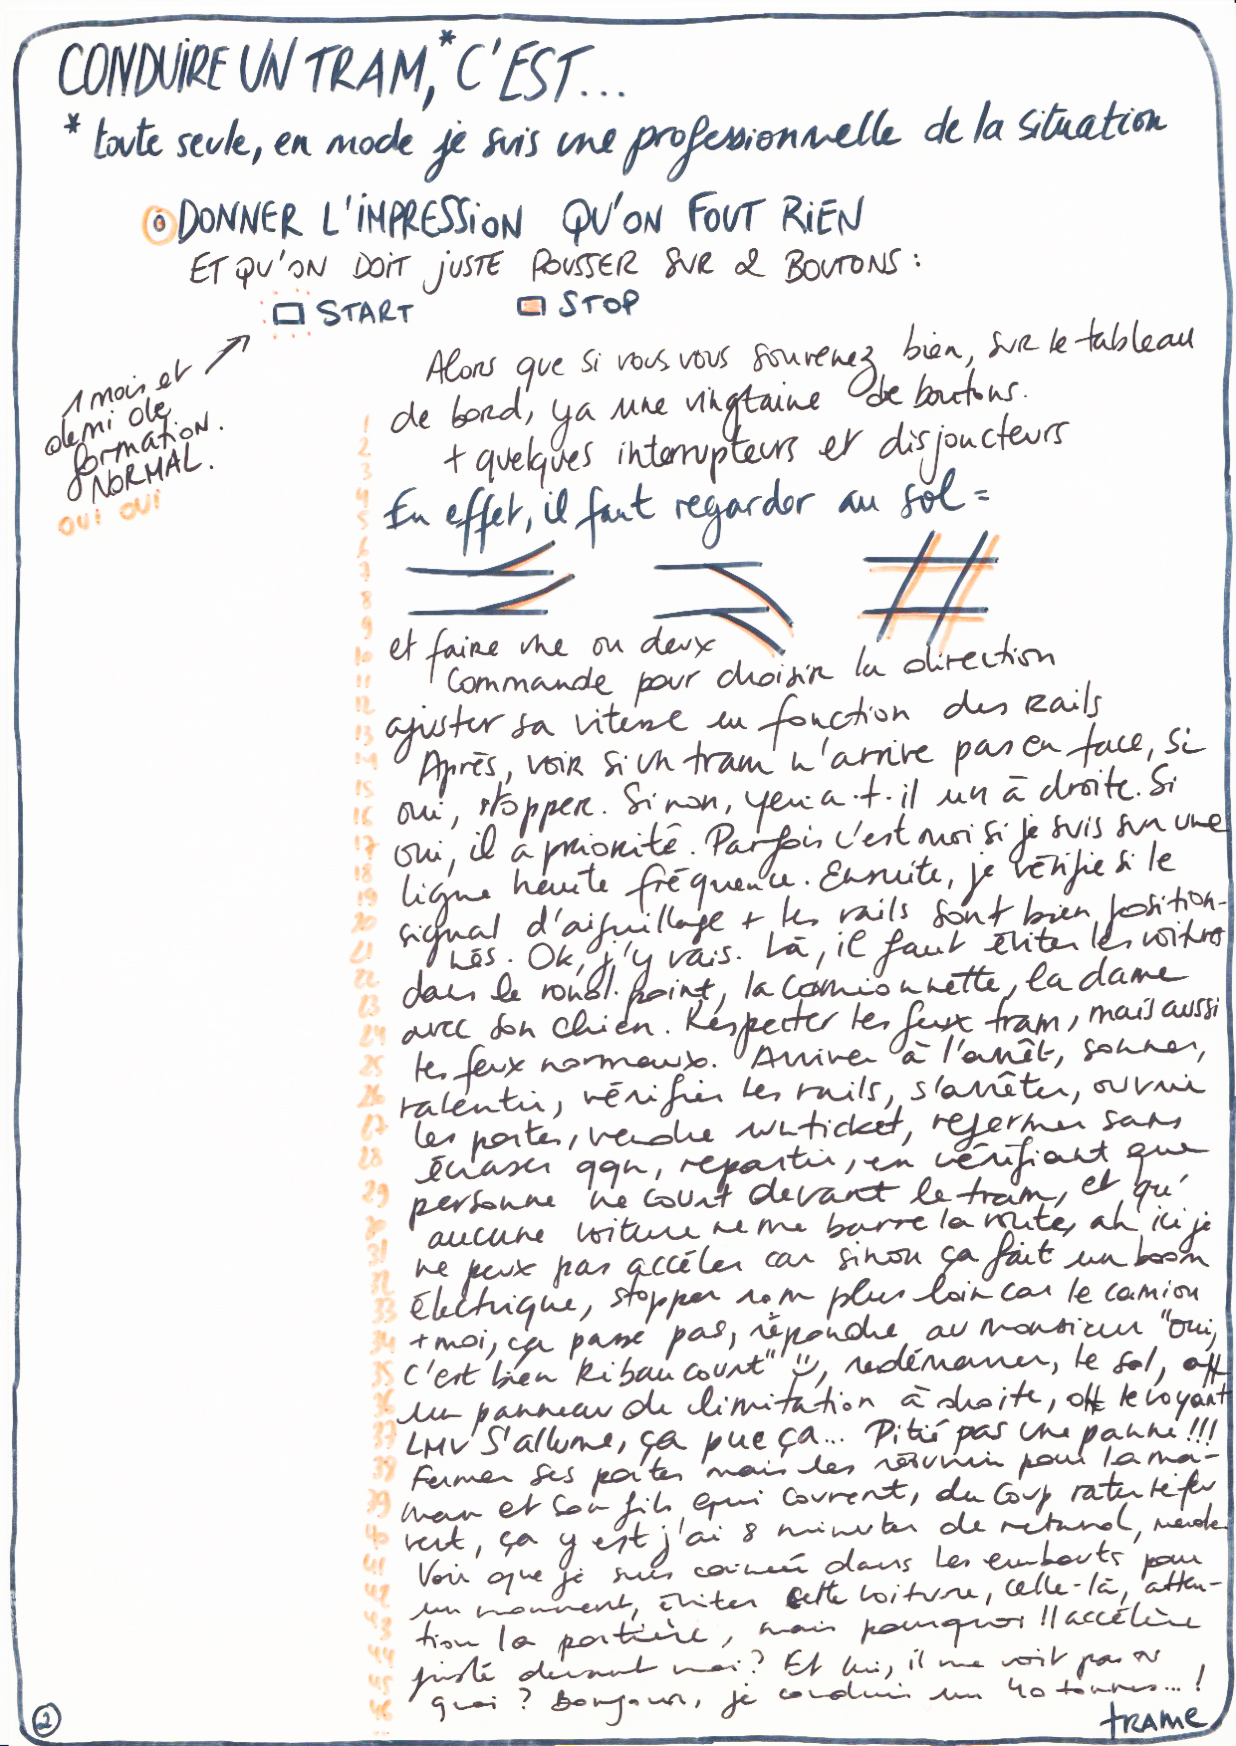 CONDUIRE UN TRAM,* C'EST...
* toute seule, en mode je suis une professionnelle de la situation
DONNER L'IMPRESSION QU'ON FOUT RIEN
ET QU'ON DOIT JUSTE POUSSER SUR 2 BOUTONS :
START STOP
1 mois et
demi de
formation.
NORMAL.
OUI OUI
Alors que si vous vous souvenez bien, sur le tableau
de bord, ya une vingtaine de boutons.
+ quelques interrupteurs et disjoncteurs
En effet, il faut regarder au sol =
et faire une ou deux
commande pour choisir la direction
ajuster sa vitesse en fonction des rails
Après, voir si un tram n'arrive pas en face, si
oui, stopper. Si non, y en a-t-il un à droite. Si
oui, il a priorité. Parfois c'est moi si je suis sur une
ligne haute fréquence. Ensuite, je vérifie si le
signal d'aiguillage + les rails sont bien position-
nés. Ok, j'y vais. Là, il faut éviter les voitures
dans le rond-point, la camionnette, la dame
avec son chien. Respecter les feux tram, mais aussi
les feux normaux. Arriver à l'arrêt, sonner,
ralentir, vérifier les rails, s'arrêter, ouvrir
les portes, vendre un ticket, refermer sans
écraser qqn, repartir, en vérifiant que
personne ne court devant le tram, et qu'
aucune voiture ne me barre la route, ah ici je
ne peux pas accéler car sinon ça fait un boom
électrique, stopper 10m plus loin car le camion
+ moi, ça passe pas, répondre au monsieur "oui,
c'est bien Ribaucourt" , redémarrer, le sol, oh
un panneau de limitation à droite, oh le voyant
LMV s'allume, ça pue ça... Pitié pas une panne !!!
Fermer ses portes mais les réouvrir pour la ma-
man et son fils qui courent, du coup rater le feu
vert, ça y est j'ai 8 minutes de retard, merde.
Voir que je suis coincée dans les embouts pour
un moment, éviter cette voiture, celle-là, atten-
tion la portière, mais pourquoi il accélère
juste devant moi ? Et lui, il me voit pas ou
quoi ? Bonjour, je conduis un 40 tonnes... !
1
2
3
4
5
6
7
8
9
10
11
12
13
14
15
16
17
18
19
20
21
22
23
24
25
26
27
28
29
30
31
32
33
34
35
36
37
38
39
40
41
42
43
44
45
46
2
tRAMe